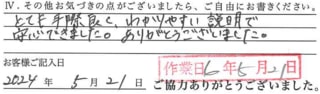 Ⅳ. その他お気づきの点がございましたら、ご自由にお書きください。
とても手際良く、わかりやすい説明で
安心できました。ありがとうございました。
お客様ご記入日
作業日6年5月21日
2024年5月21日 ご協力ありがとうございました。